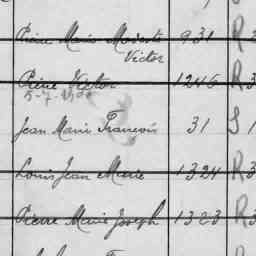 Pierre Marie Modeste 931 R
Victor
Pierre Victor 1246 R 3
5-7-1900
Jean Marie François 31 S 1
Louis Jean Marie 1324 R 3
Pierre Marie Joseph 1323 R 3